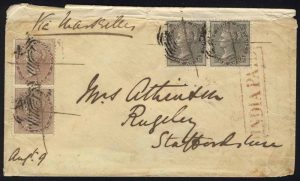 Via Marseilles
INDIA PAID
Mrs Atkinson
Rugeley
Staffordshire
Augt 9